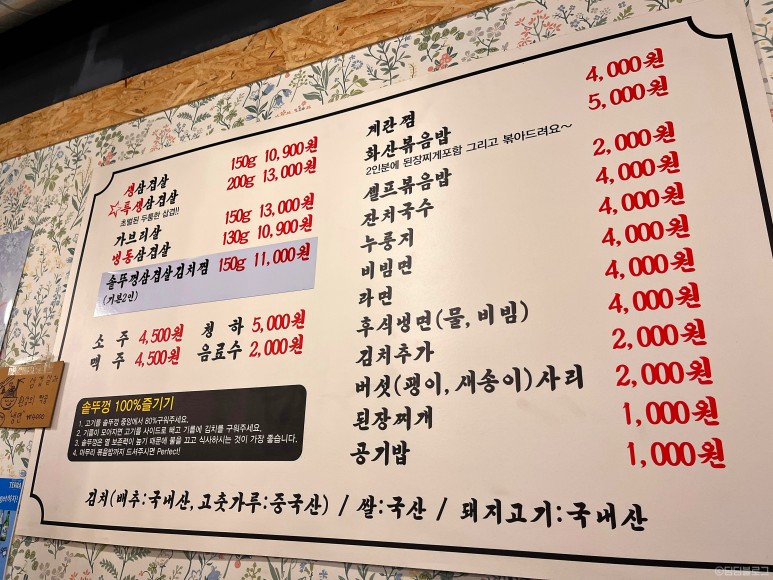 생삼겹살 150g 10,900원
특생삼겹살 200g 13,000원
초벌된 두툼한 삼겹!!
가브리살 150g 13,000원
냉동삼겹살 130g 10,900원
솥뚜껑삼겹살김치찜 150g 11,000원
(기본2인)
소주 4,500원 청하 5,000원
맥주 4,500원 음료수 2,000원
솥뚜껑 100%즐기기
1. 고기를 솥뚜껑 중앙에서 80%구워주세요.
2. 기름이 모아지면 고기를 사이드로 빼고 기름에 김치를 구워주세요.
3. 솥뚜껑은 열 보존력이 높기 때문에 불을 끄고 식사하시는 것이 가장 좋습니다.
4. 마무리 볶음밥까지 드셔주시면 Perfect!
계란찜 4,000원
화산볶음밥 5,000원
2인분에 된장찌게포함 그리고 볶아드려요~
셀프볶음밥 2,000원
잔치국수 4,000원
누룽지 4,000원
비빔면 4,000원
라면 4,000원
후식냉면(물,비빔) 4,000원
김치추가 2,000원
버섯(팽이,새송이)사리 2,000원
된장찌개 1,000원
공기밥 1,000원
김치(배추:국내산,고춧가루:중국산) / 쌀:국산 / 돼지고기:국내산
TERRA